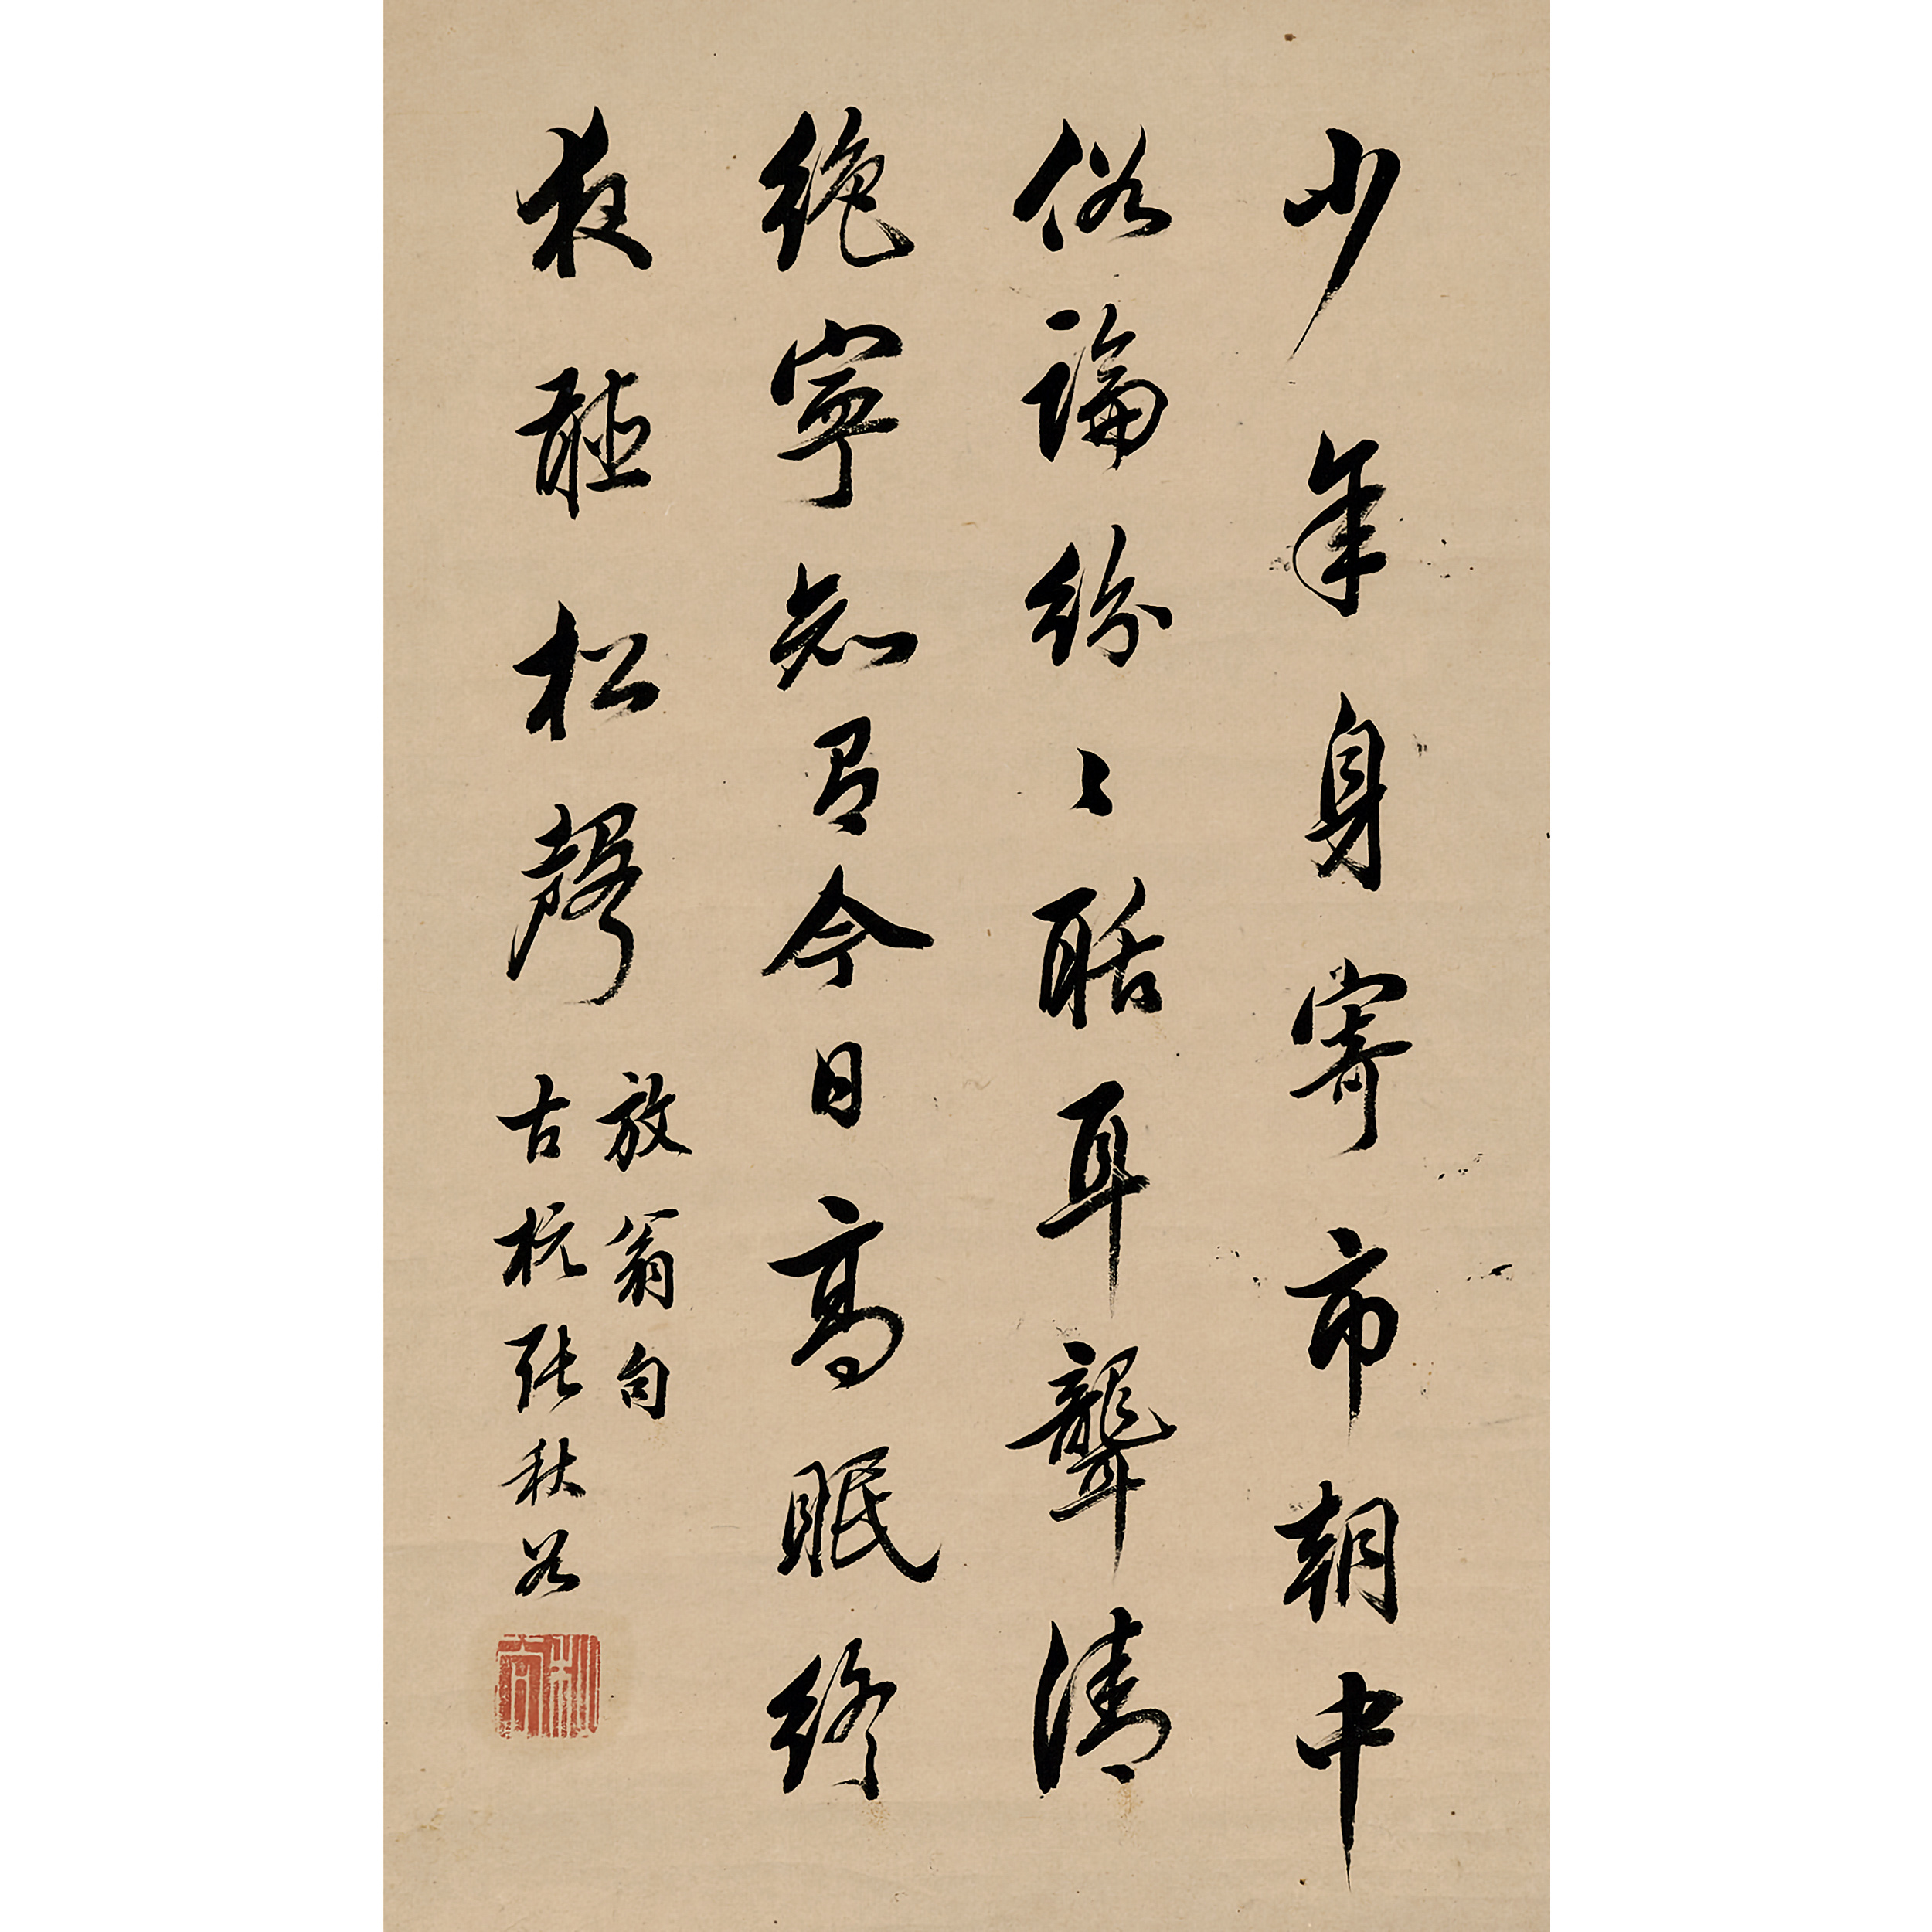 少年身寄市朝中
俗論紛〻聒耳聾清
絶寧知有今日高眠終
夜聽松聲
放翁句
古杭張秋谷